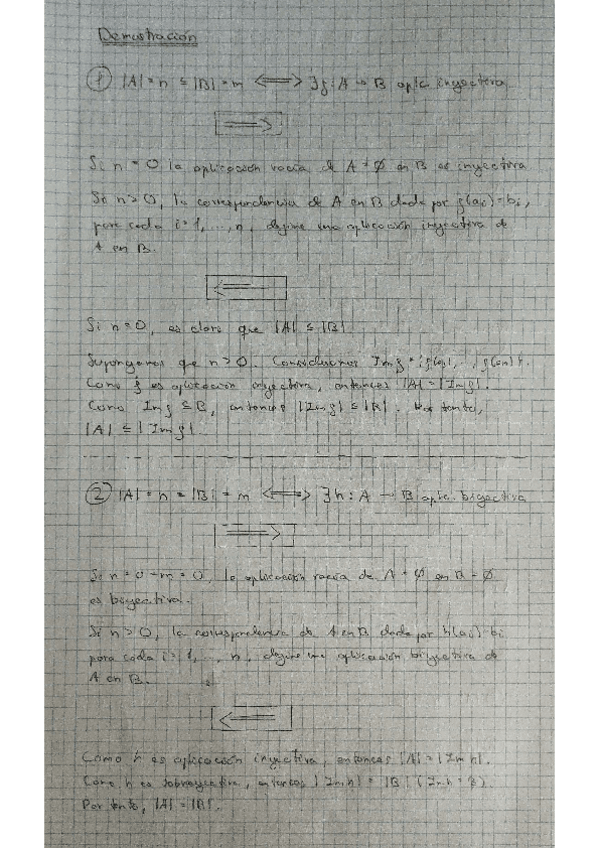 Demostración
① |A| = n ≤ |B| = m ⟺ ∃f: A → B aplic. inyectiva
⟹
Si n = 0 la aplicación vacía de A = ∅ en B es inyectiva
Si n > 0, la correspondencia de A en B dada por f(ai) = bi,
para cada i = 1, ..., n, define una aplicación inyectiva de
A en B.
⟸
Si n = 0, es claro que |A| ≤ |B|
Supongamos que n > 0. Consideremos Im f = {f(a1), ..., f(an)}.
Como f es aplicación inyectiva, entonces |A| = |Im f|.
Como Im f ⊆ B, entonces |Im f| ≤ |B|. Por tanto,
|A| ≤ |Im f|.
② |A| = n = |B| = m ⟺ ∃h: A → B aplic. biyectiva
⟹
Si n = 0 → m = 0, la aplicación vacía de A = ∅ en B = ∅
es biyectiva.
Si n > 0, la correspondencia de A en B dada por h(ai) = bi
para cada i = 1, ..., n, define una aplicación biyectiva de
A en B.
⟸
Como h es aplicación inyectiva, entonces |A| = |Im h|.
Como h es sobreyectiva, entonces |Im h| = |B| (Im h = B).
Por tanto, |A| = |B|.